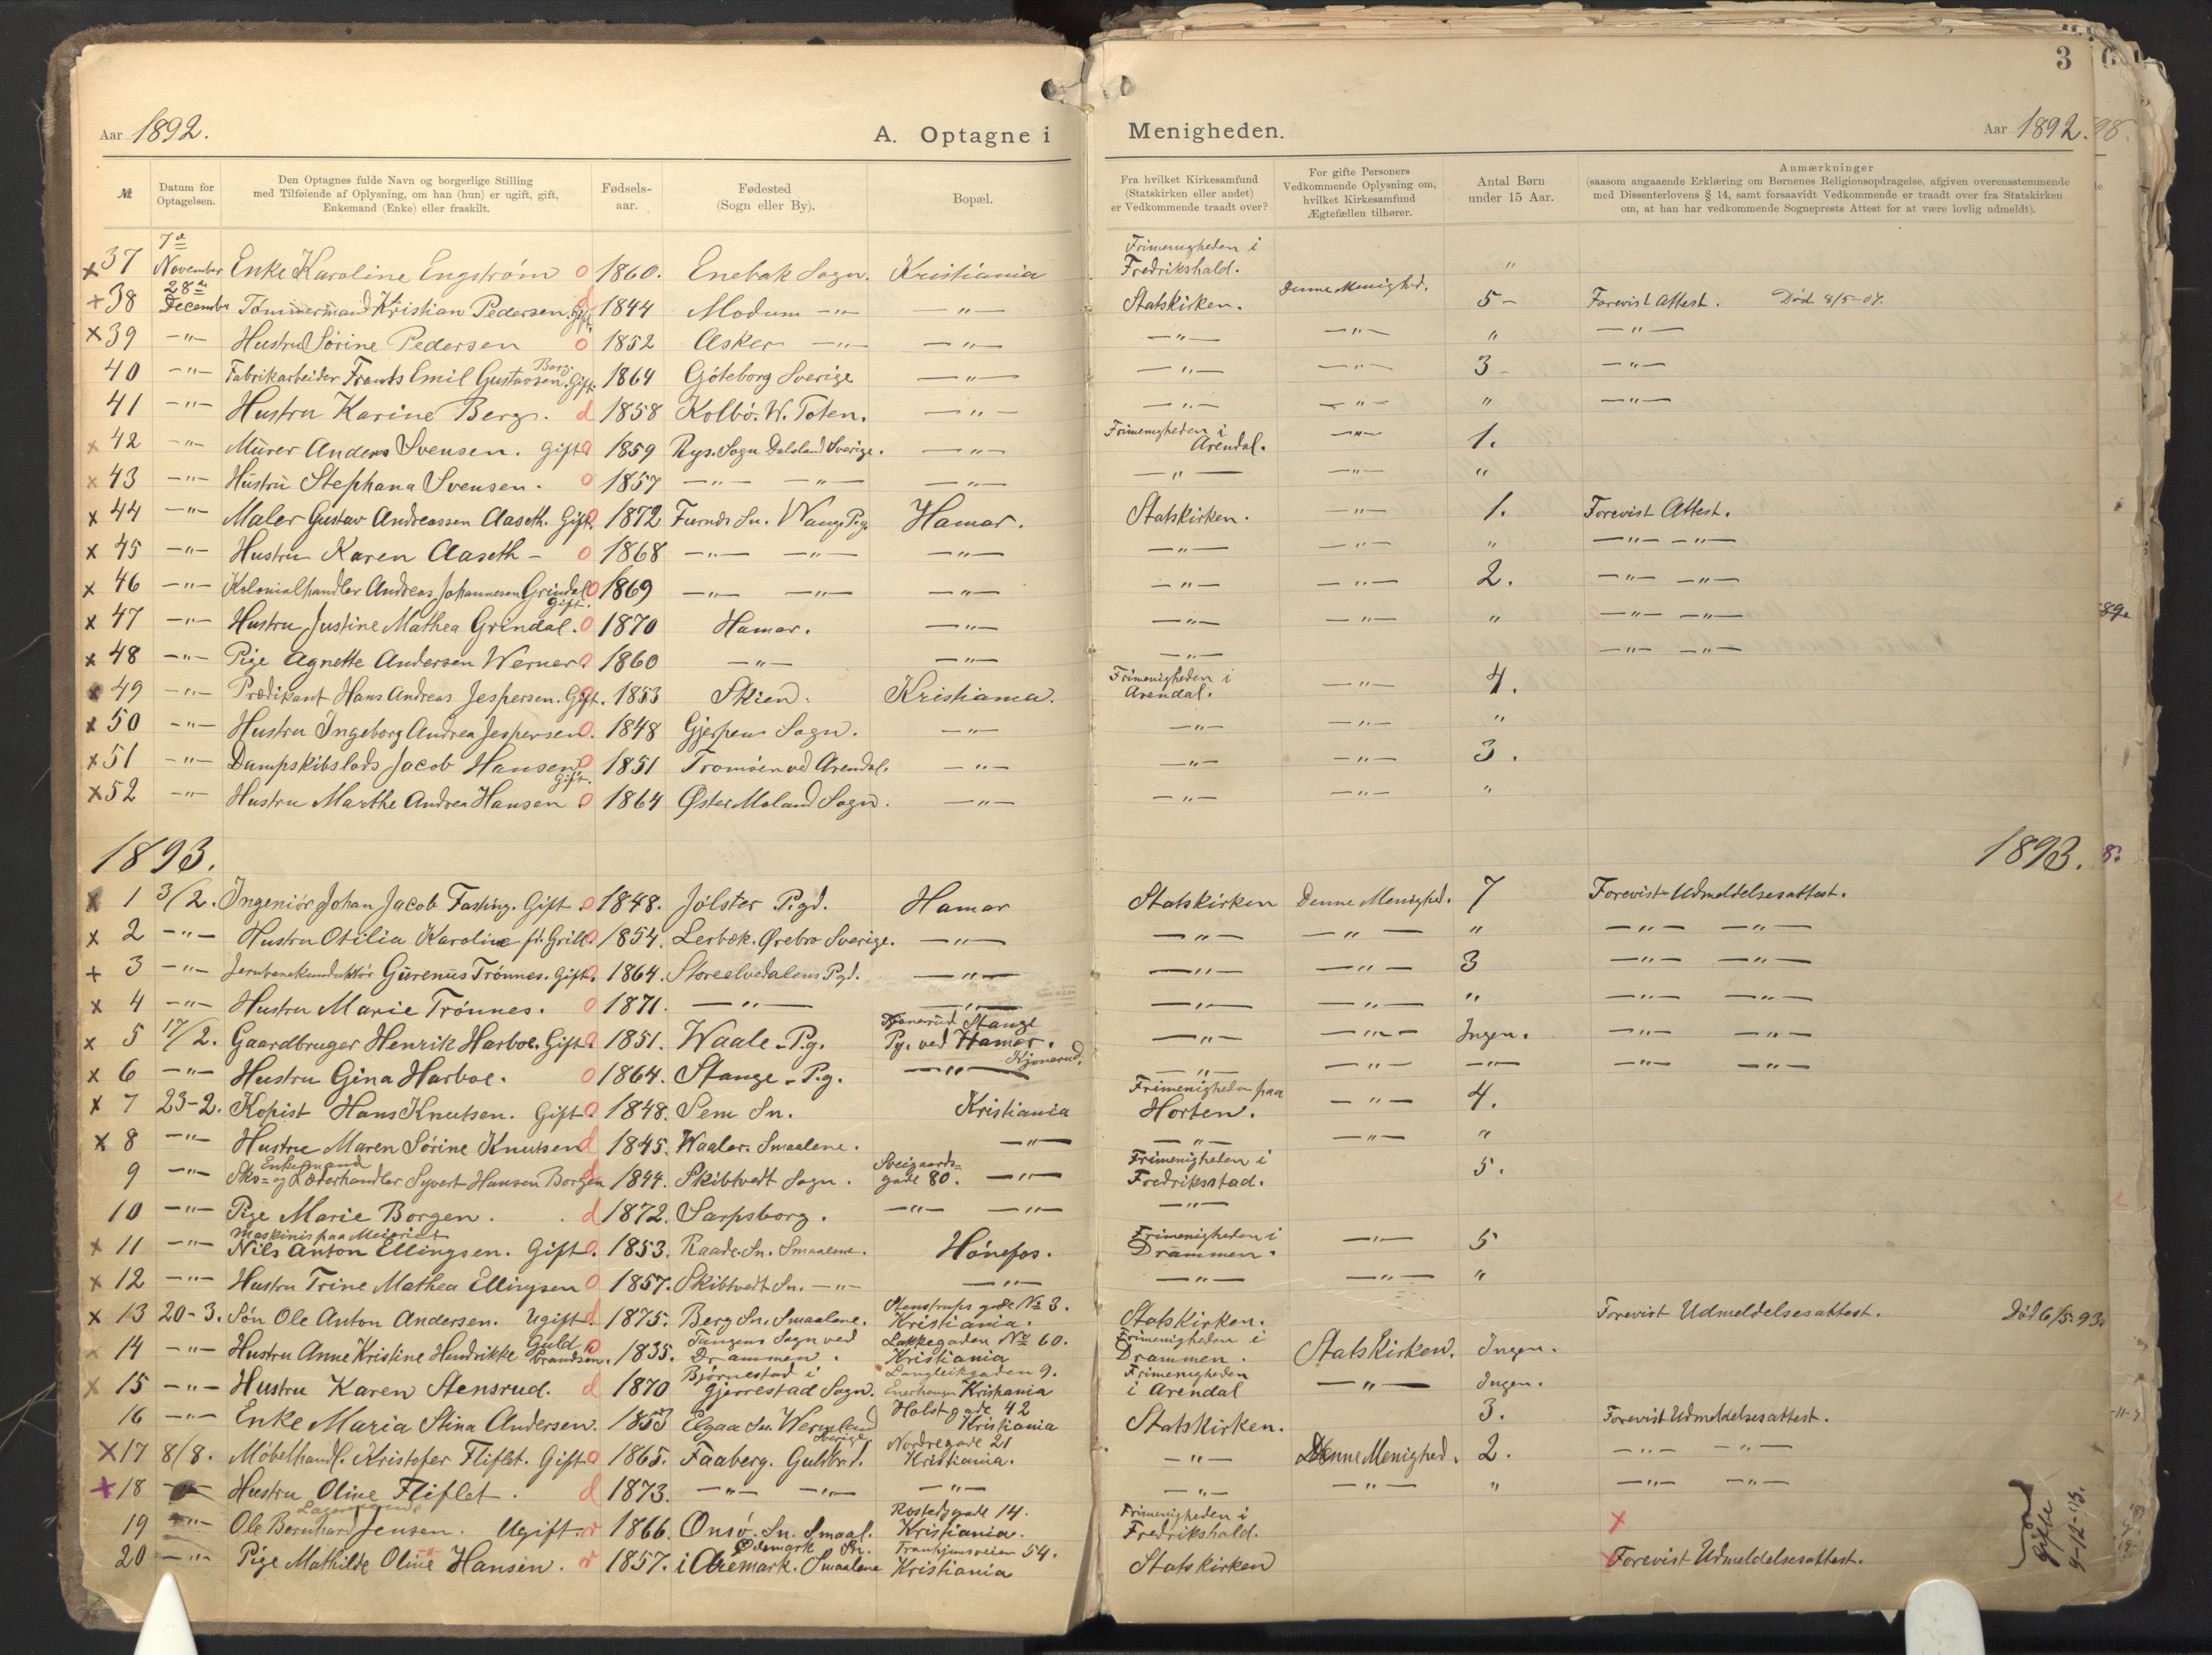 Aar 1892. A. Optagne i Menigheden. Aar 1892. 3
№ | Datum for Optagelsen. | Den Optagnes fulde Navn og borgerlige Stilling med Tilføiende af Oplysning, om han (hun) er ugift, gift, Enkemand (Enke) eller fraskilt. | Fødsels-aar. | Fødested (Sogn eller By). | Bopæl. | Fra hvilket Kirkesamfund (Statskirken eller andet) er Vedkommende traadt over? | For gifte Personers Vedkommende Oplysning om, hvilket Kirkesamfund Ægtefællen tilhører. | Antal Børn under 15 Aar. | Anmærkninger (saasom angaaende Erklæring om Børnenes Religionsopdragelse, afgiven overensstemmende med Dissenterlovens § 14, samt forsaavidt Vedkommende er traadt over fra Statskirken om, at han har vedkommende Sogneprests Attest for at være lovlig udmeldt).
x 37 7de November Enke Karoline Engstrøm o 1860. Enebak Sogn. Kristiania Frimenigheden i Fredrikshald. "
+ 38 28de December Tømmermand Kristian Pedersen. Gift. d 1844 Modum -"- -"- Statskirken. Denne Menighed. 5- Forevist Attest. Død 8/5-07.
x 39 -"- Hustru Sørine Pedersen o 1852 Asker -"- -"- -"- -"- " -"-
40 -"- Fabrikarbeider Frants Emil Gustavsen Berg. Gift. 1864 Gøteborg Sverige -"- -"- -"- 3- -"-
41 -"- Hustru Karine Berg. d 1858 Kolbo. W. Toten. -"- -"- -"- " -"-
x 42 -"- Murer Anders Svensen. Gift o 1859 Rys. Sogn Dalsland Sverige. -"- Frimenigheden i Arendal. -"- 1.
x 43 -"- Hustru Stephana Svensen. o 1857 -"- -"- -"- -"- -"- "
x 44 -"- Maler Gustav Andreassen Aaseth. Gift. o 1872 Furnds Sn. Wang Pg. Hamar. Statskirken. -"- 1. Forevist Attest.
x 45 -"- Hustru Karen Aaseth - o 1868 -"- -"- -"- -"- -"- " -"- -"-
x 46 -"- Kolonialhandler Andreas Johannesen Grindal Gift. o 1869 -"- -"- -"- -"- -"- 2. -"- -"-
x 47 -"- Hustru Justine Mathea Grindal. o 1870 Hamar. -"- -"- -"- " -"- -"-
x 48 -"- Pige Agnette Andersen Werner o 1860 -"- -"- -"- -"- -"-
x 49 -"- Prædikant Hans Andreas Jespersen. Gift. 1853 Skien. Kristiania. Frimenigheden i Arendal. -"- 4.
x 50 -"- Hustru Ingeborg Andrea Jespersen o. 1848 Gjerpen Sogn. -"- -"- -"- "
x 51 -"- Dampskibslods Jacob Hansen Gift. o 1851 Tromøen ved Arendal. -"- -"- -"- 3.
x 52 -"- Hustru Marthe Andrea Hansen o 1864 Øster Moland Sogn. -"- -"- -"- "
1893. 1893.
x 1 3/2. Ingeniør Johan Jacob Fasting. Gift. o 1848. Jølster Pgd. Hamar Statskirken Denne Menighed. 7 Forevist Udmeldelsesattest.
x 2 -"- Hustru Otilia Karoline fd. Grill o 1854. Lerbæk. Ørebro Sverige. -"- -"- -"- " -"- -"-
+ 3 -"- Jernbanekonduktør Gurenius Trønnes. Gift o. 1864. Storeelvedalens Pgd. -"- -"- -"- 3 -"- -"-
x 4 -"- Hustru Marie Trønnes. o 1871. -"- -"- -"- -"- " -"- -"-
x 5 17/2. Gaardbruger Henrik Harboe. Gift o 1851. Waale-Pg. Kjonerud Stange Pg. ved Hamar. -"- -"- Ingen. -"- -"-
x 6 -"- Hustru Gina Harboe. o 1864. Stange-Pg. -"- Kjonerud. -"- -"- -"- -"- -"-
x 7 23-2. Kopist Hans Knutsen. Gift o 1848. Sem Sn. Kristiania Frimenigheden paa Horten. -"- 4.
x 8 -"- Hustru Maren Sørine Knutsen d 1845. Waaler. Smaalene. -"- -"- -"- "
9 -"- Enkemand Sko- og Læderhandler Syvert Hansen Borgen d 1844. Skibtvedt Sogn. Sveigaards-gade 80. -"- Frimenigheden i Fredriksstad. 5.
10 -"- Pige Marie Borgen. d 1872. Sarpsborg. -"- -"- -"-
x 11 -"- Maskinist paa Meieriet Nils Anton Ellingsen. Gift o. 1853. Raade Sn. Smaalene. Hønefos. Frimenigheden i Drammen. -"- 5
x 12 -"- Hustru Trine Mathea Ellingsen o 1857. Skibtvedt Sn. -"- -"- -"- -"- "
x 13 20-3. Søn Ole Anton Andersen. Ugift d. 1875. Berg Sn. Smaalene. Stenstrups gade № 3. Kristiania. Statskirken. Forevist Udmeldelsesattest. Død 6/5-93.
x 14 -"- Hustru Anne Kristine Hendrikke Guldbrandsen. o 1835. Tangens Sogn ved Drammen. Lakkegaden № 60. Kristiania Frimenigheden i Drammen. Statskirken. Ingen.
x 15 -"- Hustru Karen Stensrud. d 1870 Bjørnestad i Gjerrestad Sogn. Langleikgaden 9. Enerhaugen Kristiania Frimenigheden i Arendal -"- Ingen.
16 -"- Enke Maria Stina Andersen. 1853 Elgaa Sn. Wermeland Sverige Holstgade 42 Kristiania Statskirken. 3. Forevist Udmeldelsesattest.
x 17 8/8. Møbelhandl. Kristofer Fliflet. Gift o 1865. Faaberg. Guldbrd. Nordregade 21 Kristiania. -"- Denne Menighed. 2. -"- -"-
x 18 -"- Hustru Oline Fliflet. d 1873. -"- -"- -"- -"- -"- " -"- -"-
19 -"- Ole Bernhard Jensen. Ugift. 1866. Onsø. Sn. Smaal. Rostedsgade 14. Kristiania. Frimenigheden i Fredrikshald. x
20 -"- Pige Mathilde Oline Hansen. 1857. Ødemark Sn. i Aremark. Smaalene Tranhjemsveien 54. Kristiania Statskirken Forevist Udmeldelsesattest.
gifte 9-12-93.